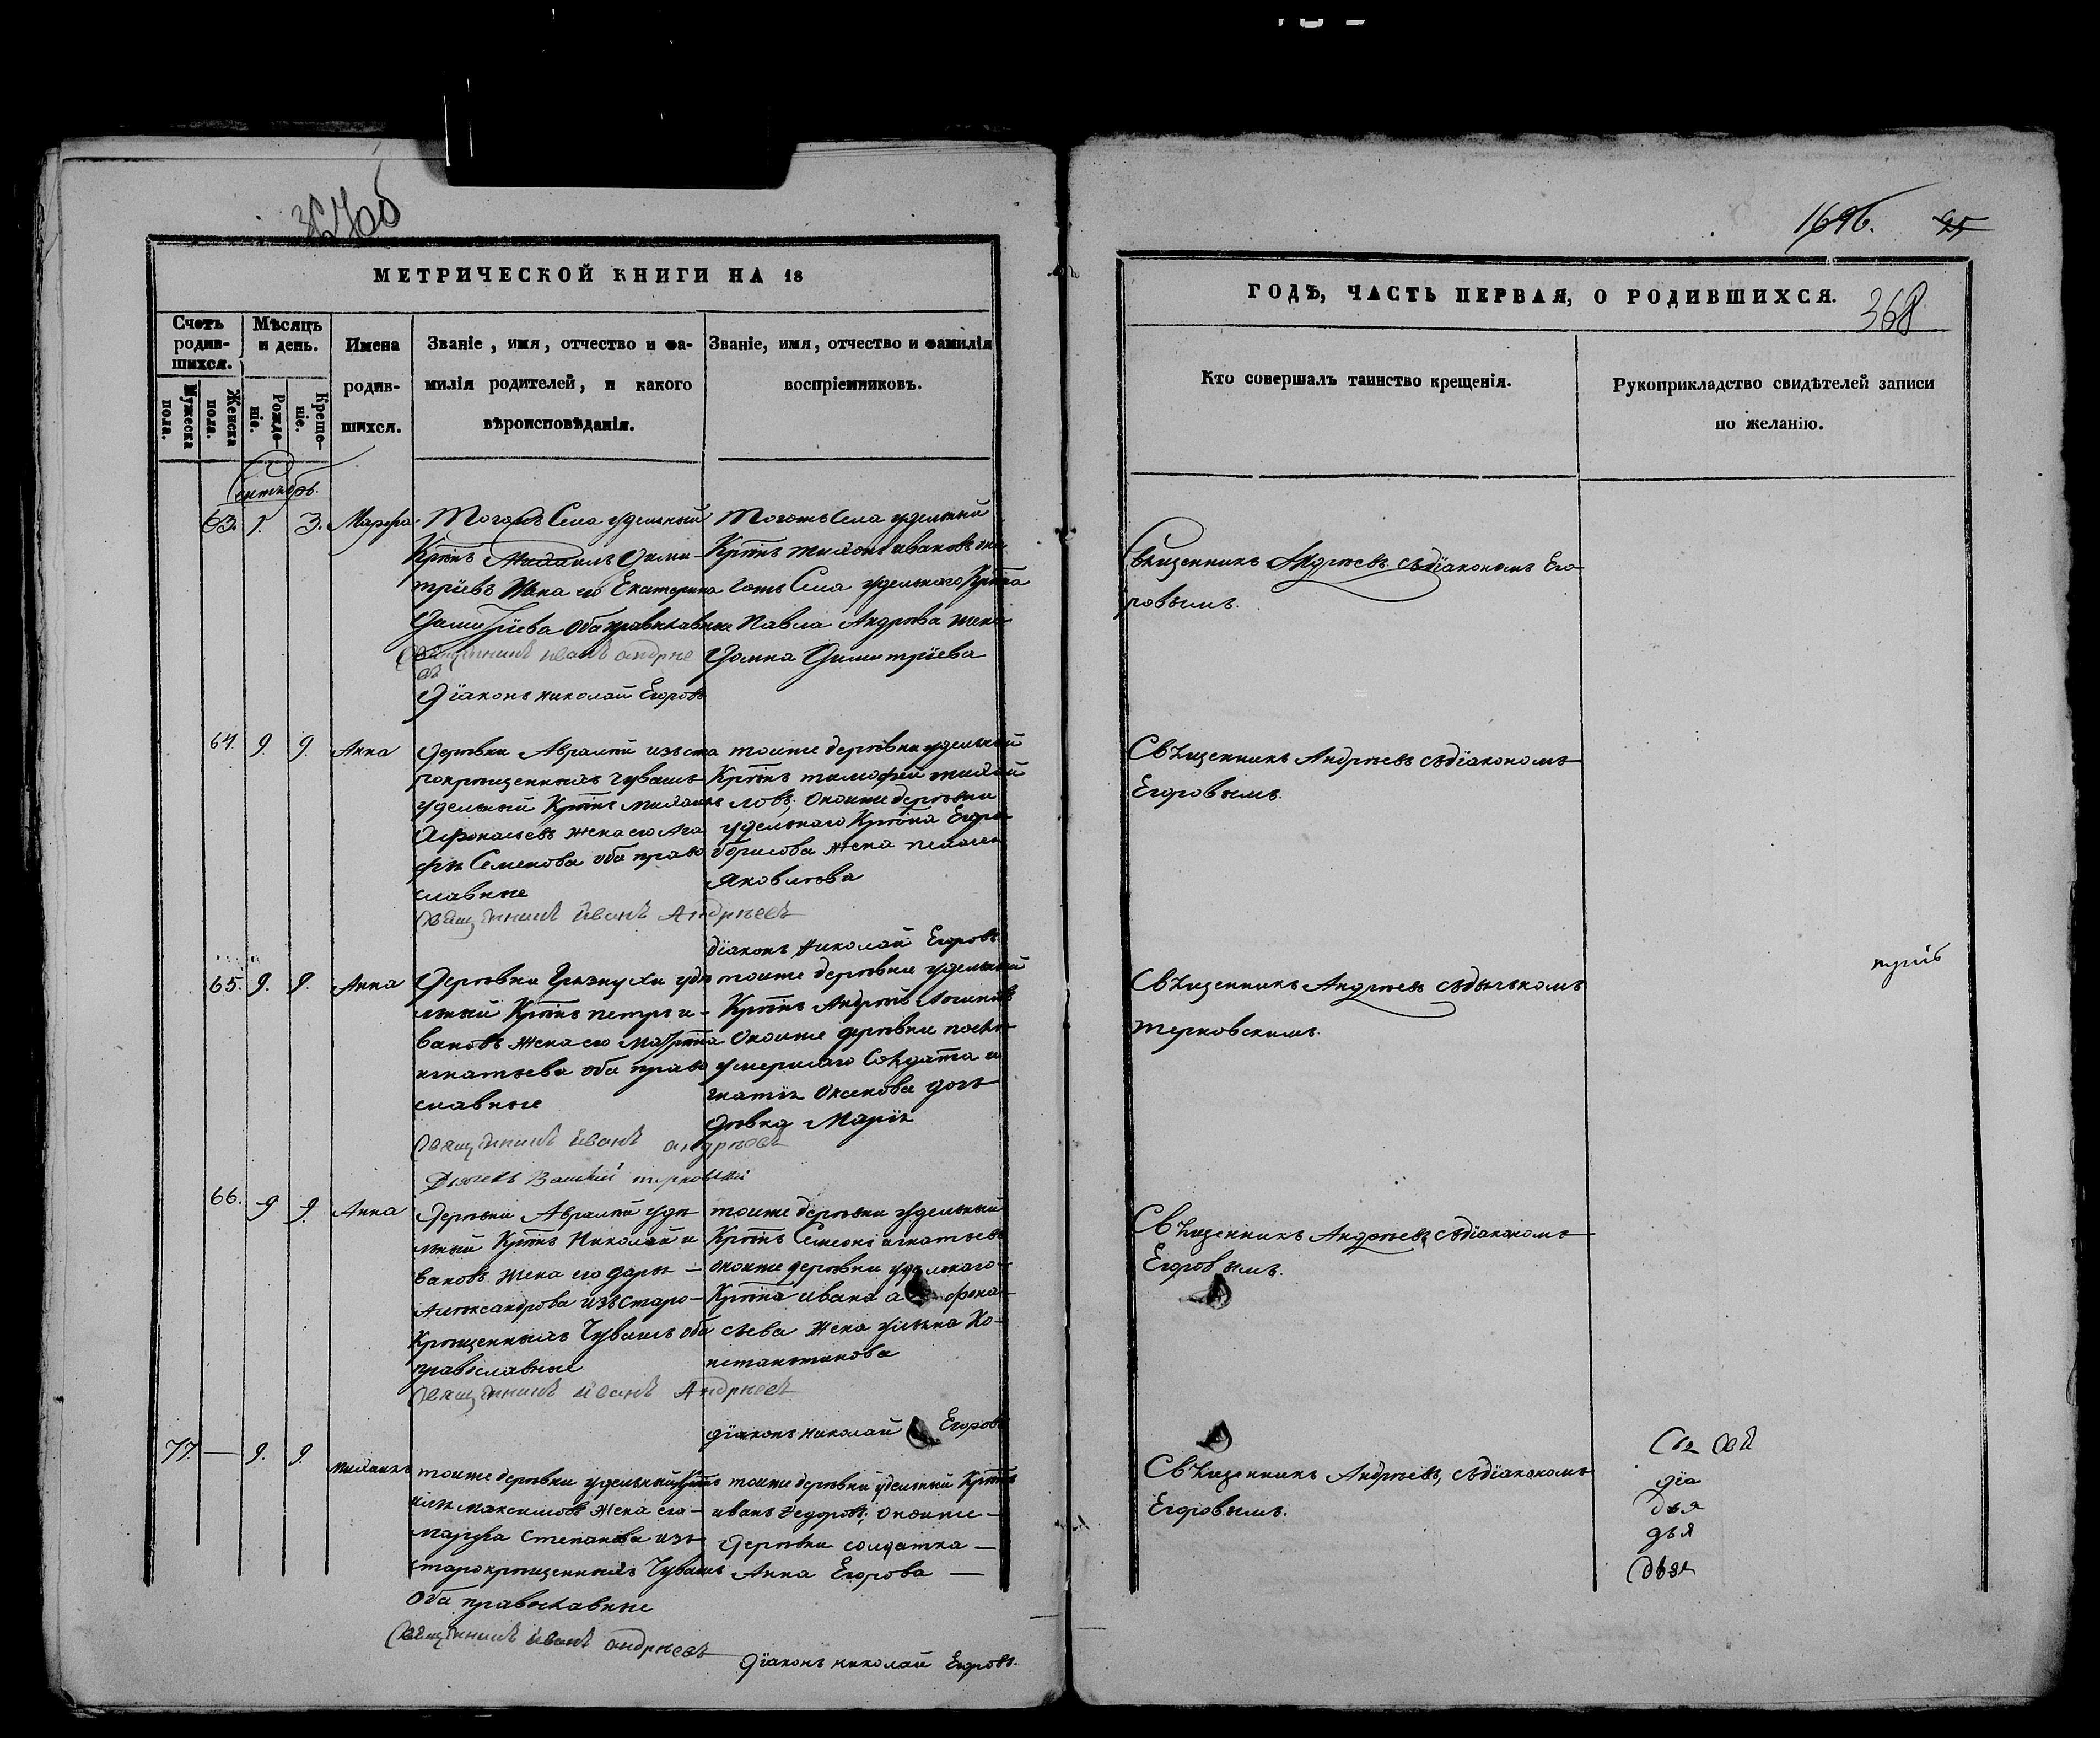 МЕТРИЧЕСКОЙ КНИГИ НА 18
Счетъ родив-шихся.
Мѣсяцъ и день.
Имена родив-шихся.
Званіе, имя, отчество и фа-
милія родителей, и какого
вѣроисповѣданія.
Званіе, имя, отчество и фамилія
воспріемниковъ.
Мужеска пола.
Женска пола.
Рожде-ніе.
Креще-ніе.
Сентябрь.
63. 1. 3. Марфа
Тогожъ Села удельный
Крѣтнъ Михаилъ Дими-
тріевъ Жена его Екатерина
Димитріева Оба православные
Священникъ иванъ андрѣе
въ
Діаконъ николай Егоровъ
Тогожъ Села удельный
Крѣтнъ ивановъ
гожъ Села удельного Крѣтна
Павла Андрѣева жена
Домна Димитріева
64. 9. 9. Анна
Деревни Авралей изъ ста
рокрещенныхъ чувашъ
удельный Крѣтнъ Михаилъ
Афонасьевъ жена его Ага
фья Семенова оба право
славные
Священникъ иванъ Андрѣевъ
тоиже деревни удельный
Крѣтнъ тимофей михай
ловъ; Онойже деревни
удельнаго Крѣтна Егора
борисова жена пелагея
Яковлева
діаконъ николай Егоровъ
65. 9. 9. Анна
Деревни Грязнухи уде
льный Крѣтнъ петръ и-
вановъ жена его Матрена
игнатьева оба право
славные
Священникъ иванъ андрѣевъ
Дьячекъ Василий терновский
тоиже деревни удельный
Крѣтнъ Андрей Логиновъ
Онойже деревни послѣ
умершаго Солдата и
гнатія Оксенова дочь
девка Марія
66. 9 9. Анна
Деревни Авралей уде
льный Крѣтнъ Николай и
вановъ жена его дарья
Александрова изъ старо-
Крещенныхъ Чувашъ оба
православные
Священникъ иванъ Андрѣевъ
тоиже деревни удельный
Крѣтнъ Семенъ игнатьевъ
онойже деревни удельнаго
Крѣтна ивана афона-
сьева жена ульяна Ко-
нстантинова
діаконъ николай Егоровъ
77. — 9. 9. михаилъ
тоиже деревни удельный Крѣтнъ
илья максимовъ жена его
марфа Степанова изъ
старокрещенныхъ Чувашъ
Оба православные
Священникъ иванъ андрѣевъ
тоиже деревни удельный Крѣтнъ
иванъ федоровъ; онойже
Деревни солдатка
Анна Егорова
Діаконъ николай Егоровъ.
1696. 95
ГОДѢ, ЧАСТЬ ПЕРВАЯ, О РОДИВШИХСЯ.
368
Кто совершалъ таинство крещенія.
Рукоприкладство свидѣтелей записи
по желанію.
Священникъ Андреевъ съдіакономъ Его-
ровымъ.
Священникъ Андреевъ съдіакономъ
Егоровымъ.
Священникъ Андреевъ съдьячкомъ
терновскимъ.
Священникъ Андреевъ съдіакономъ
Егоровымъ.
Священникъ Андреевъ, съдіакономъ
Егоровымъ.
діа
дья
дья